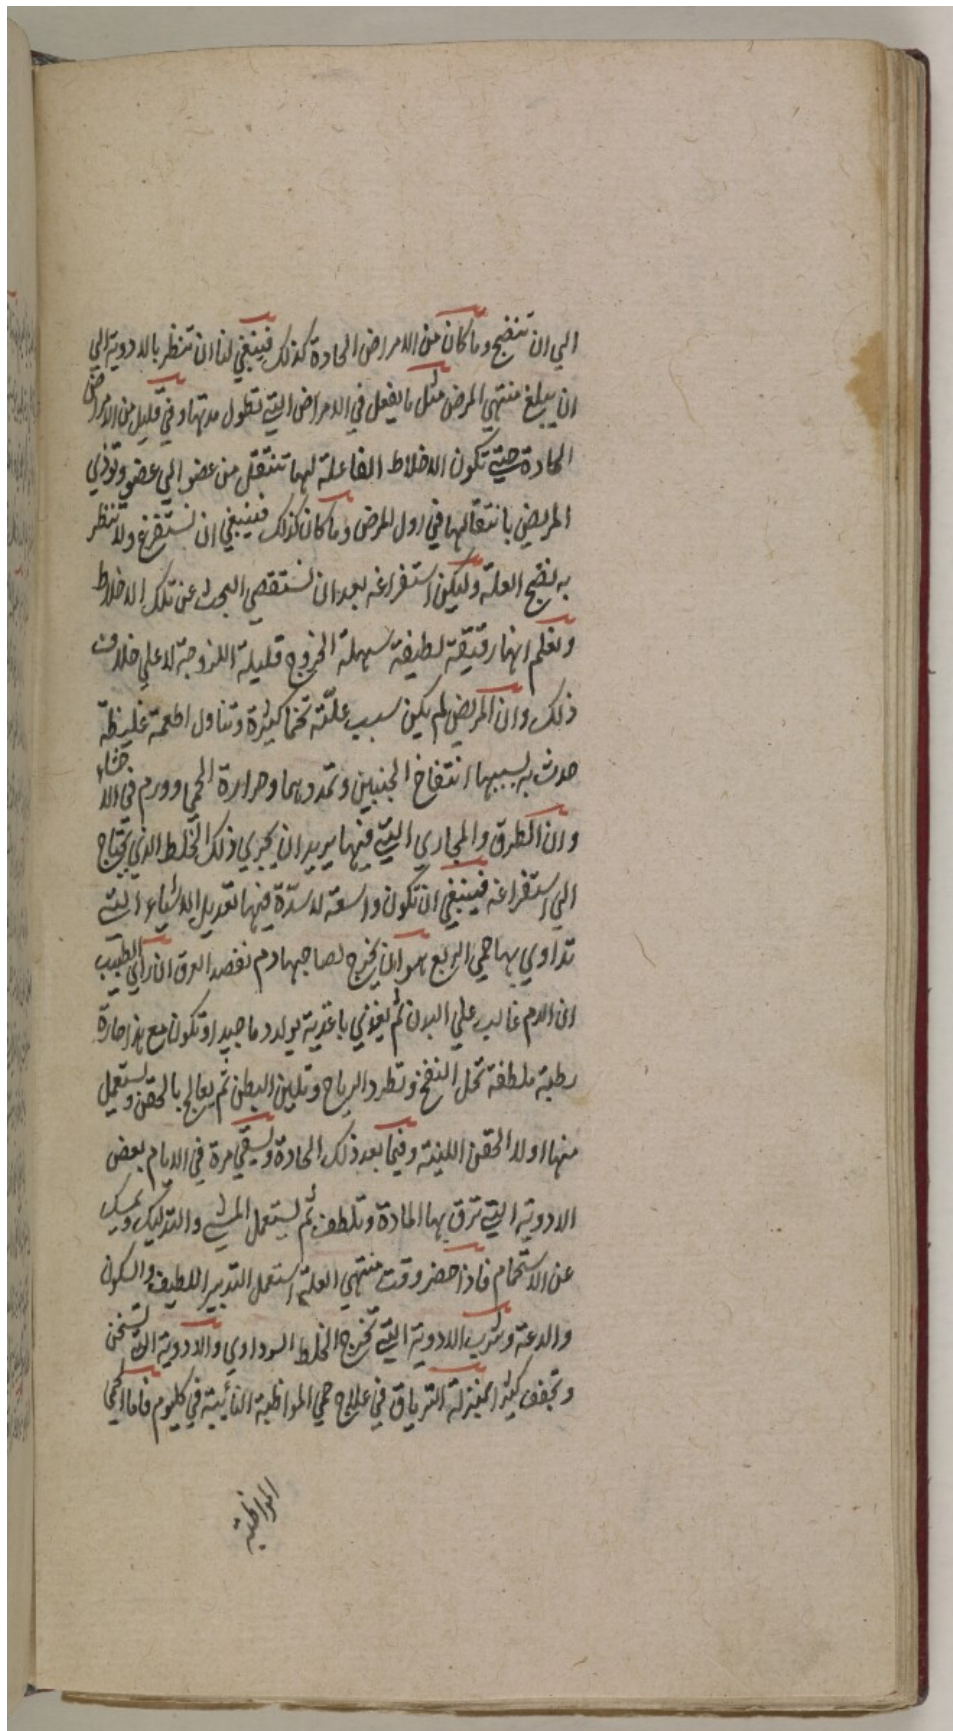 الي ان تنضج وما كان من الامراض الحادة كذلك فينبغي لنا ان تنظر بالادوية الي
ان يبلغ منتهي المرض مثل ما يفعل في الامراض التي تطول مدتها وفي قليل من الامراض
الحادة حتي تكون الاخلاط الفاعلة لها تنتقل من عضو الي عضو وتوذي
المريض بانتقالها في اول المرض وما كان كذلك فينبغي ان تستفرغ ولا تنظر
به نضج العلة وليكن استفراغه بعد ان نستقصي البحث عن تلك الاخلاط
وتعلم انها رقيقة لطيفة سهلة الخروج قليلة اللزوجة لا علي خلاف
ذلك وان المريض لم يكن سبب علته تخما كثيرة وتناول اطعمة غليظة
حدث به بسببها انتفاخ الجنبين وتمددهما وحرارة الحمي وورم في الاحشاء
وان الطرق والمجاري التي فيها يريد ان يجري ذلك الخلط الذي يحتاج
الي استفراغه فينبغي ان تكون واسعة لا سدة فيها تعديل الاشياء التي
تداوي بها حمي الربع هو ان يخرج لصاحبها دم بفصد العرق ان راي الطبيب
ان الدم غالب علي البدن ثم يغذي باغذية يولد دما جيدا وتكون مع هذا حارة
رطبة ملطفة تحل النفخ وتطرد الرياح وتلين البطن ثم يعالج بالحقن ويستعمل
منها اولا الحقن اللينة وفيما بعد ذلك الحادة ويسقي مرة في الايام بعض
الادوية التي ترق بها المادة وتلطف ثم يستعمل المشي والتدليك ويمسك
عن الاستحمام فاذا حضر وقت منتهي العلة استعمل التدبير اللطيف والسكون
والدعة وشرب الادوية التي تخرج الخلط السوداوي والادوية التي تسخن
وتجفف كثيرا بمنزلة الترياق في علاج حمي المواظبة النائبة في كل يوم فاما الحمي
المواظبة